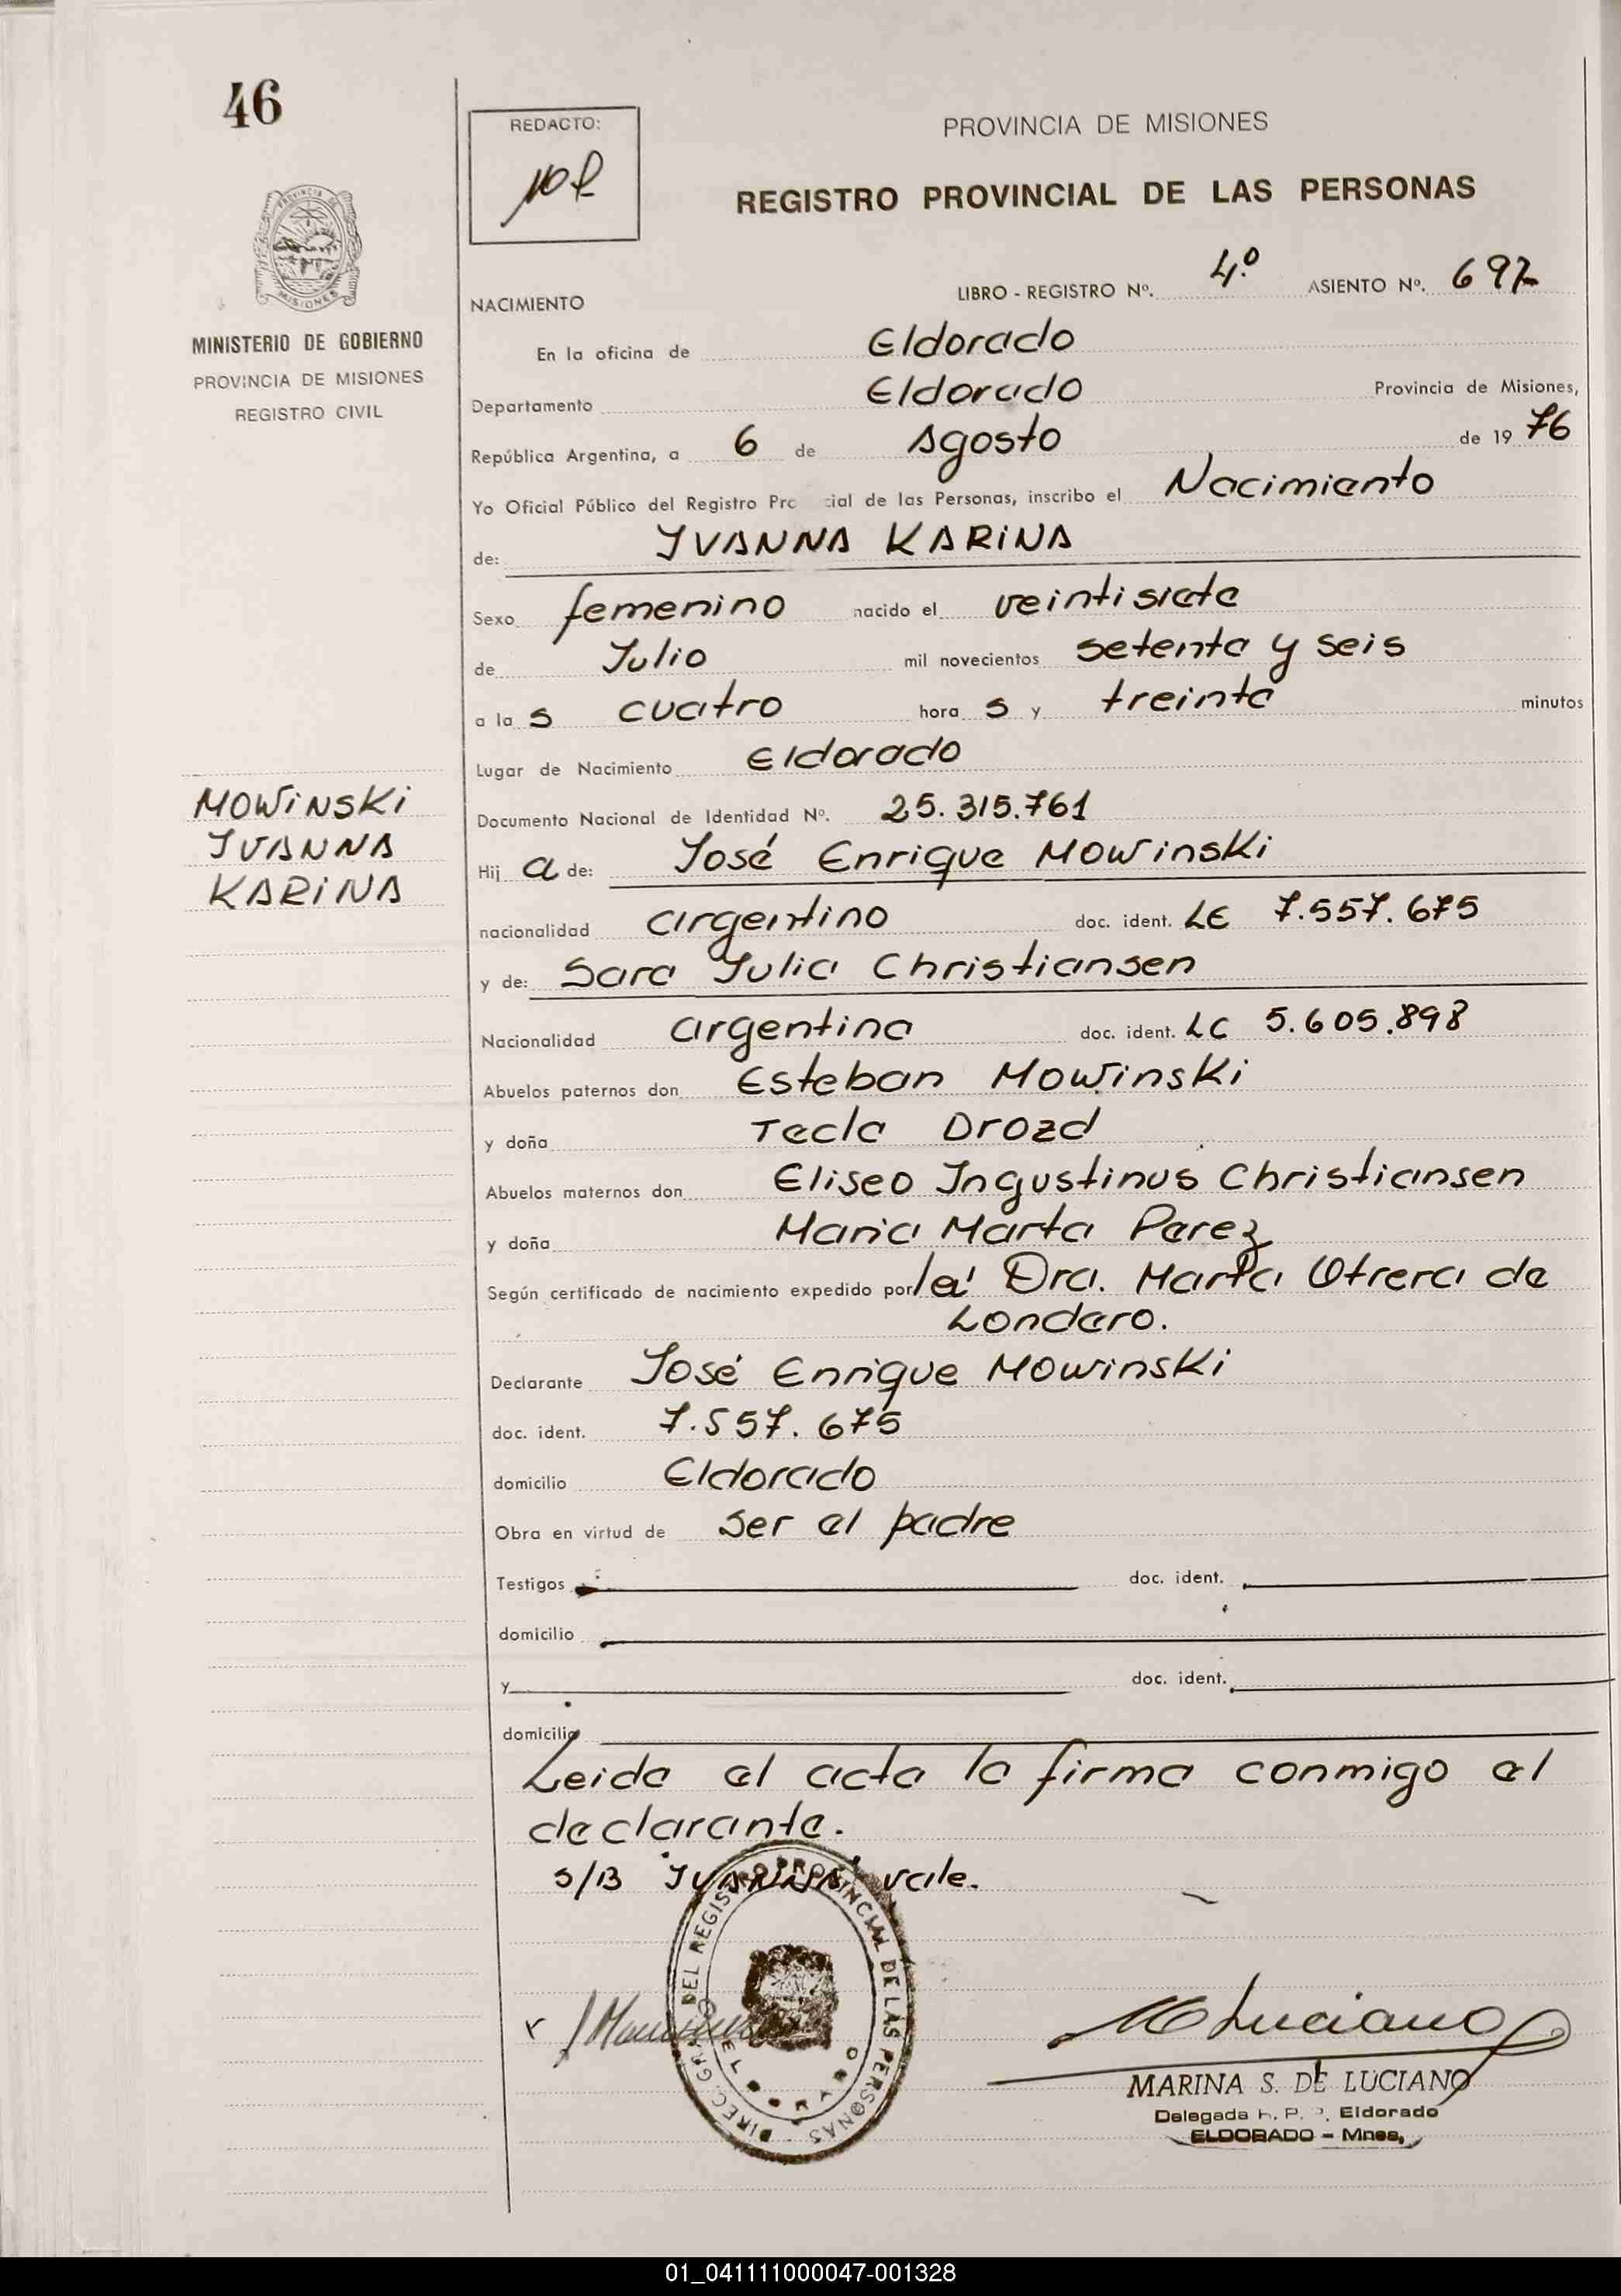 46
REDACTO:
PROVINCIA DE MISIONES
REGISTRO PROVINCIAL DE LAS PERSONAS
LIBRO - REGISTRO Nº. 4º ASIENTO Nº. 697
NACIMIENTO
MINISTERIO DE GOBIERNO
PROVINCIA DE MISIONES
REGISTRO CIVIL
En la oficina de Eldorado
Departamento Eldorado Provincia de Misiones,
República Argentina, a 6 de Agosto de 1976
Yo Oficial Público del Registro Pro cial de las Personas, inscribo el Nacimiento
de: IVANNA KARINA
Sexo femenino nacido el veintisiete
de Julio mil novecientos setenta y seis
a la s cuatro hora s y treinta minutos
Lugar de Nacimiento Eldorado
MOWINSKI
IVANNA
KARINA
Documento Nacional de Identidad Nº. 25.315.761
Hij a de: José Enrique Mowinski
nacionalidad argentino doc. ident. LE 7.557.675
y de: Sara Julia Christiansen
Nacionalidad argentina doc. ident. LC 5.605.898
Abuelos paternos don Esteban Mowinski
y doña Tecla Drozd
Abuelos maternos don Eliseo Ingustinus Christiansen
y doña Maria Marta Perez
Según certificado de nacimiento expedido por la Dra. Marta Otrera de
Londero.
Declarante José Enrique Mowinski
doc. ident. 7.557.675
domicilio Eldorado
Obra en virtud de ser el padre
Testigos doc. ident.
domicilio
y doc. ident.
domicilio
Leida el acta la firma conmigo el
declarante.
S/B vale.
DIREC. GRAL. DEL REGISTRO PROVINCIAL DE LAS PERSONAS
ELDORADO
Luciano
MARINA S. DE LUCIANO
Delegada R. P. P. Eldorado
ELDORADO - Mnes.
01_041111000047-001328